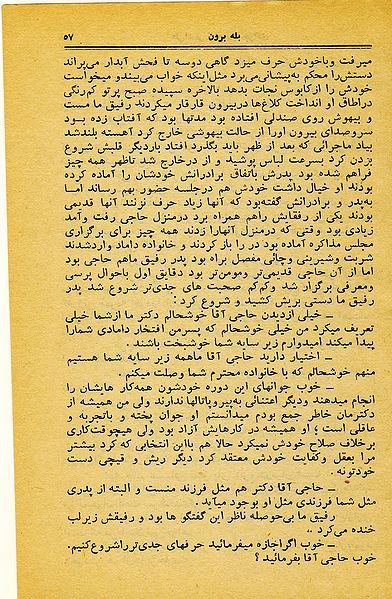 بله برون ۵۷
میرفت وباخودش حرف میزد گاهی دوسه تا فحش آبدار می‌پراند
دستش‌را محکم به‌پیشانی‌می‌برد مثل‌اینکه خواب می‌بیندو میخواست
خودش را ازکابوس نجات بدهد بالاخره سپیده صبح پرتو کم‌رنگی
دراطاق او انداخت کلاغ‌ها دربیرون قارقار میکردند رفیق ما مست
و بیهوش روی صندلی افتاده بود مدتها بود که آفتاب زده بود
سروصدای بیرون اورا از حالت بیهوشی خارج کرد آهسته بلندشد
بیاد ماجرائی که بعد از ظهر باید بگذرد افتاد باردیگر قلبش شروع
بزدن کرد بسرعت لباس پوشید و از درخارج شد تاظهر همه چیز
فراهم شده بود پدرش باتفاق برادرانش خودشان را آماده کرده
بودند او خیال داشت خودش هم درجلسه حضور بهم رساند اما
به‌پدر و برادرانش گفته‌بود که آنها زیاد حرف نزنند آنها قدیمی
بودند یکی از رفقایش راهم همراه برد درمنزل حاجی رفت وآمد
زیادی بود وقتی که درمنزل آنهارا زدند همه چیز برای برگزاری
مجلس مذاکره آماده بود در را باز کردند و خانواده داماد واردشدند
شربت وشیرینی وچائی مفصل براه بود پدر رفیق ماهم حاجی بود
اما از آن حاجی قدیمی‌تر ومومن‌تر بود دقایق اول باحوال پرسی
ومعرفی برگزار شد وکم‌کم صحبت های جدی‌تر شروع شد پدر
رفیق ما دستی بریش کشید و شروع کرد :
ـ خیلی ازدیدن حاجی آقا خوشحالم دکتر ما ازشما خیلی
تعریف میکرد من خیلی خوشحالم که پسرمن افتخار دامادی شمارا
پیدا میکند امیدوارم زیر سایه شما خوشبخت باشند .
ـ اختیار دارید حاجی آقا ماهمه زیر سایه شما هستیم
منهم خوشحالم که با خانواده محترم شما وصلت میکنم .
ـ خوب جوانهای این دوره خودشون همه‌کار هایشان را
انجام میدهند ودیگر اعتنائی به‌بیروپاتالها ندارند ولی من همیشه از
دکترمان خاطر جمع بودم میدانستم او جوان پخته و باتجربه و
عاقلی است ؛ او همیشه در کارهایش آزاد بود ولی هیچوقت‌کاری
برخلاف صلاح خودش نمیکرد حالا هم بااین انتخابی که کرد بیشتر
مرا بعقل وکفایت خودش معتقد کرد دیگر ریش و قیچی دست
خودتونه .
ـ حاجی آقا دکتر هم مثل فرزند منست و البته از پدری
مثل شما فرزندی مثل او بوجود میآید.
رفیق ما بی‌حوصله ناظر این گفتگو ها بود و رفیقش زیرلب
خنده می‌کرد ..
ـ خوب اگراجازه میفرمائید حرفهای جدی‌تررا شروع کنیم.
خوب حاجی آقا بفرمائید ؟